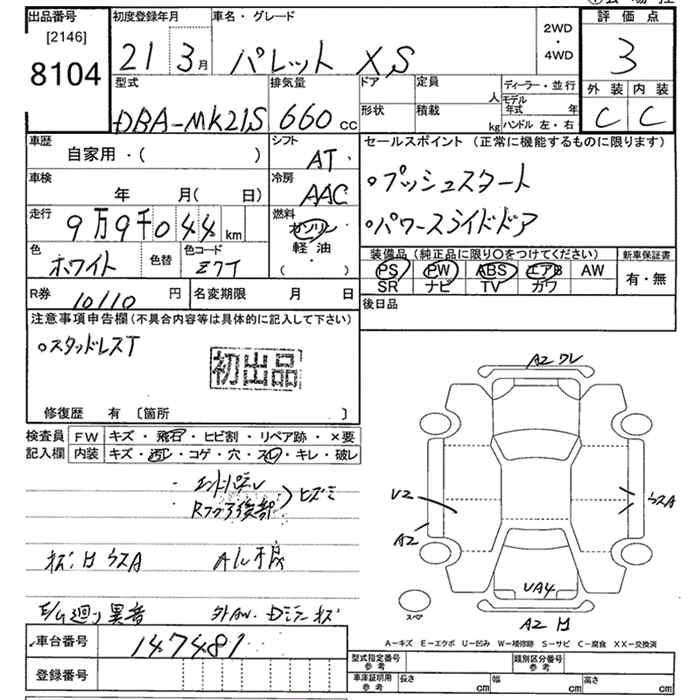 出品番号
[2146]
8104
初度登録年月
21 3月
車名・グレード
パレット XS
2WD
・
4WD
評価点
3
外装 内装
C C
型式
DBA-MK21S
排気量
660 cc
ドア
形状
定員 人
積載 kg
ディーラー・並行
モデル年式 年
ハンドル 左・右
車歴
自家用・( )
シフト
AT
セールスポイント (正常に機能するものに限ります)
。プッシュスタート
。パワースライドドア
車検
年 月( 日)
冷房
AAC
走行
9万9千044km
燃料
ガソリン
軽油
( )
色
ホワイト
色替
色コード
Z7T
装備品 (純正品に限り〇をつけてください)
PS PW ABS エアB AW
SR ナビ TV ガワ
新車保証書
有・無
R券
10110 円
名変期限 月 日
後日品
注意事項申告欄 (不具合内容等は具体的に記入して下さい)
。スタッドレスT
初出品
修復歴 有 〔箇所 〕
検査員
記入欄
FW キズ・飛石・ヒビ割・リペア跡・×要
内装 キズ・汚レ・コゲ・穴・スレ・キレ・破レ
・エンドパネル
・Rフロア後部
ヒズミ
A2 ワレ
U2
A2
UA4
A2
スペア
A-キズ E-エクボ U-凹み W-補修跡 S-サビ C-腐食 XX-交換済
E/G廻り異音
車台番号
147481
登録番号
型式指定番号
参考
類別区分番号
参考
車庫証明用
参考
長さ cm
幅 cm
高さ cm